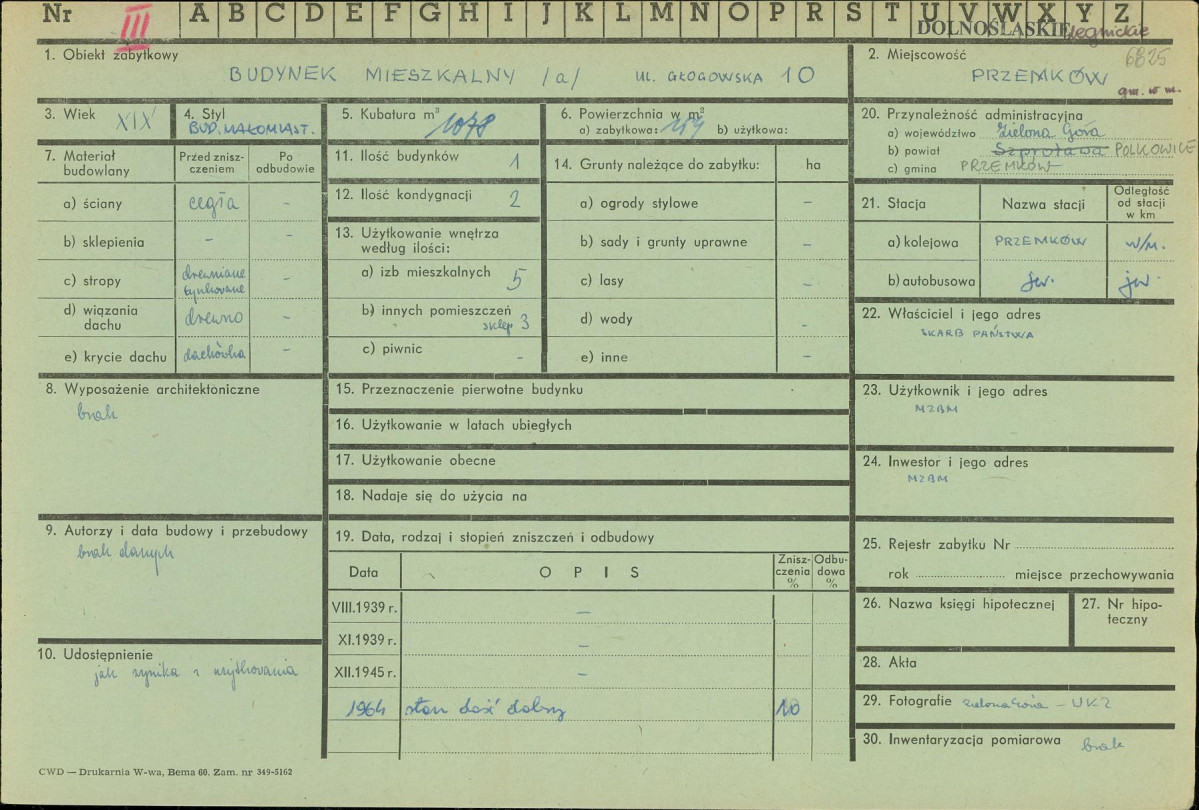 Nr III A B C D E F G H I J K L M N O P R S T U V W X Y Z
DOLNOŚLĄSKIE legnickie
6825
1. Obiekt zabytkowy
BUDYNEK MIESZKALNY /a/ ul. GŁOGOWSKA 10
2. Miejscowość
PRZEMKÓW
gm. w m.
3. Wiek XIX
4. Styl
BUD. MAŁOMIAST.
5. Kubatura m³
1078
6. Powierzchnia w m²
a) zabytkowa: 154 b) użytkowa:
7. Materiał budowlany
Przed zniszczeniem
Po odbudowie
a) ściany cegła -
b) sklepienia - -
c) stropy drewniane tynkowane -
d) wiązania dachu drewno -
e) krycie dachu dachówka -
8. Wyposażenie architektoniczne
brak
9. Autorzy i data budowy i przebudowy
brak danych
10. Udostępnienie
jak wynika z użytkowania
11. Ilość budynków 1
12. Ilość kondygnacji 2
13. Użytkowanie wnętrza według ilości:
a) izb mieszkalnych 5
b) innych pomieszczeń
sklep 3
c) piwnic -
14. Grunty należące do zabytku: ha
a) ogrody stylowe -
b) sady i grunty uprawne -
c) lasy -
d) wody -
e) inne -
15. Przeznaczenie pierwotne budynku
16. Użytkowanie w latach ubiegłych
17. Użytkowanie obecne
18. Nadaje się do użycia na
19. Data, rodzaj i stopień zniszczeń i odbudowy
Data OPIS Zniszczenia % Odbudowa %
VIII.1939 r. -
XI.1939 r. -
XII.1945 r. -
1964 stan dość dobry 10
20. Przynależność administracyjna
a) województwo Zielona Góra
b) powiat Szprotawa POLKOWICE
c) gmina PRZEMKÓW
21. Stacja Nazwa stacji Odległość od stacji w km
a) kolejowa PRZEMKÓW w/m.
b) autobusowa jw. jw.
22. Właściciel i jego adres
SKARB PAŃSTWA
23. Użytkownik i jego adres
MZBM
24. Inwestor i jego adres
MZBM
25. Rejestr zabytku Nr
rok miejsce przechowywania
26. Nazwa księgi hipotecznej
27. Nr hipoteczny
28. Akta
29. Fotografie Zielona Góra - WKZ
30. Inwentaryzacja pomiarowa brak
CWD — Drukarnia W-wa, Bema 60. Zam. nr 349-5162